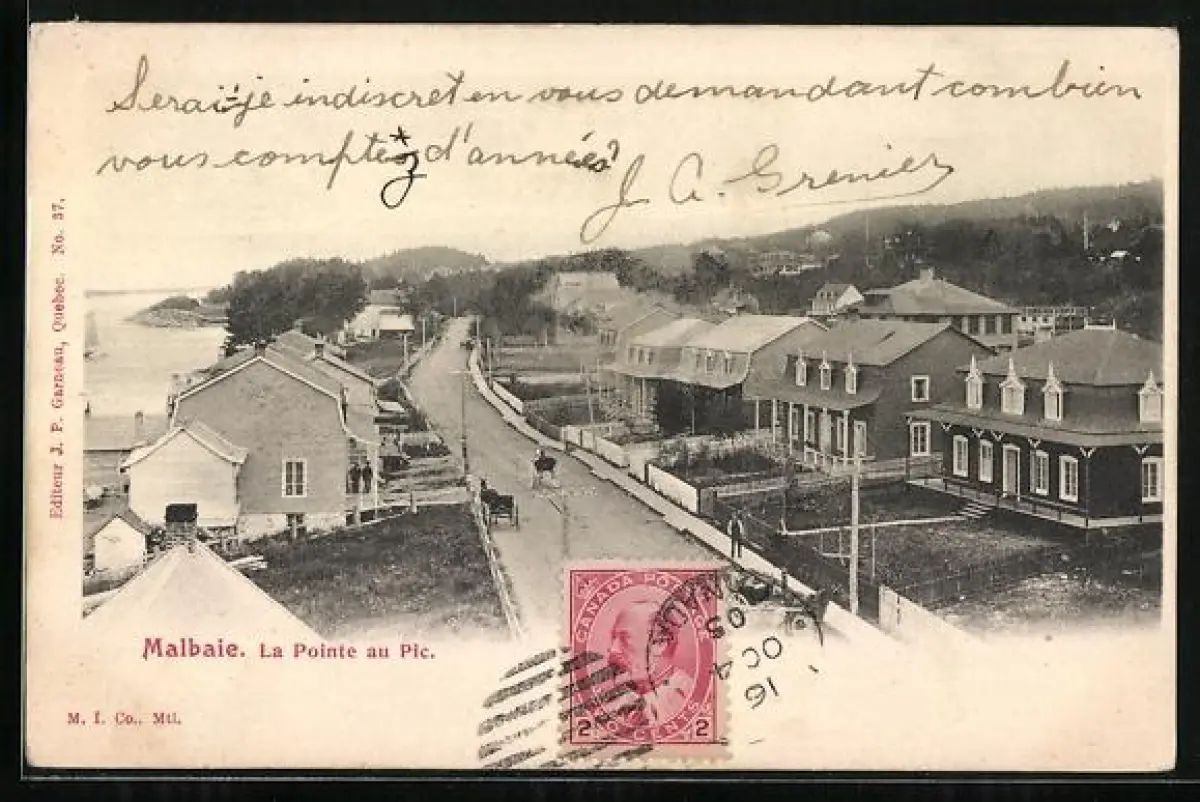 Serai-je indiscret en vous demandant combien
vous comptez d'années?
J. A. Grenier
Editeur J. P. Garneau, Quebec. No. 37.
CANADA POSTAGE
2 TWO CENTS 2
OC 4
05
16
Malbaie. La Pointe au Pic.
M. I. Co., Mtl.